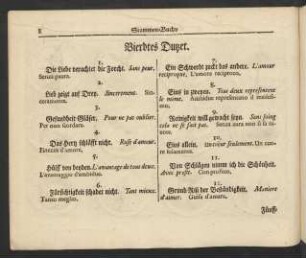 8
Stammen-Buchs
Vierdtes Dutzet.
1.
Die Liebe verachtet die Forcht. Sans peur.
Senza paura.
2.
Lieb zeigt auf Drey. Sincerement.
3.
Gesundheit Gläser. Pour ne pas oublier.
Per non scordare.
4.
Das Hertz schläfft nicht. Ruse d'amour.
Finezze d'amore.
5.
Hülff von beyden. L'avantage de tous deux.
L'avantaggio d'ambidue.
6.
Fürsichtigkeit schadet nicht. Tant mieux.
Tanto meglio.
7.
Ein Schwerdt zuckt das andere. L'amour
reciproque. L'amore reciproco.
8.
Eins in zweyen. Tous deux representent
le même.
9.
Reinigkeit will gewacht seyn. Sans soing
cela ne se fait pas. Senza cura non si fà
10.
Eins allein. Un coeur seulement. Un cuo-
re solamente.
11.
Von Schlägen nimm ich die Schönheit.
Avec profit. Con profitto.
12.
Grund-Riß der Beständigkeit. Maniere
d'aimer. Guisa d'amare.
Fünff-